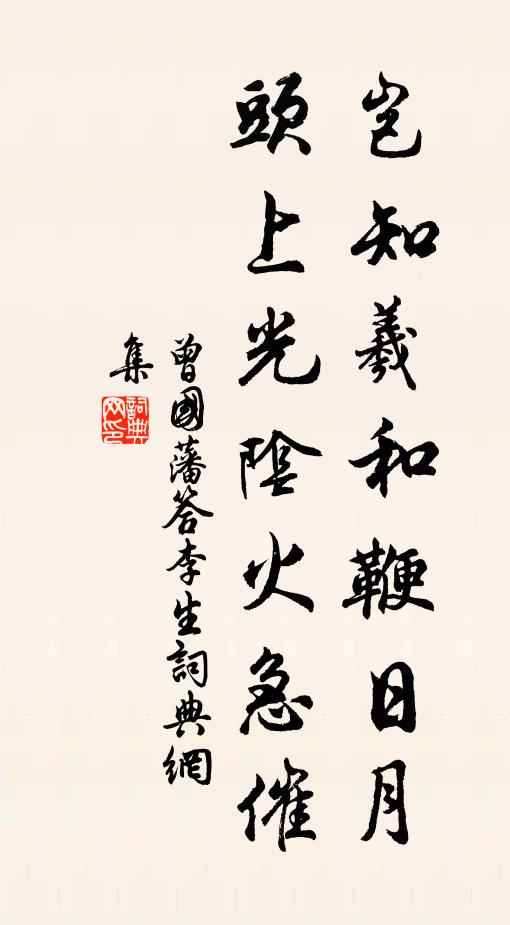 豈知羲和鞭日月
頭上光陰火急催
曾國藩答李生詞典網
集
詞典
网印